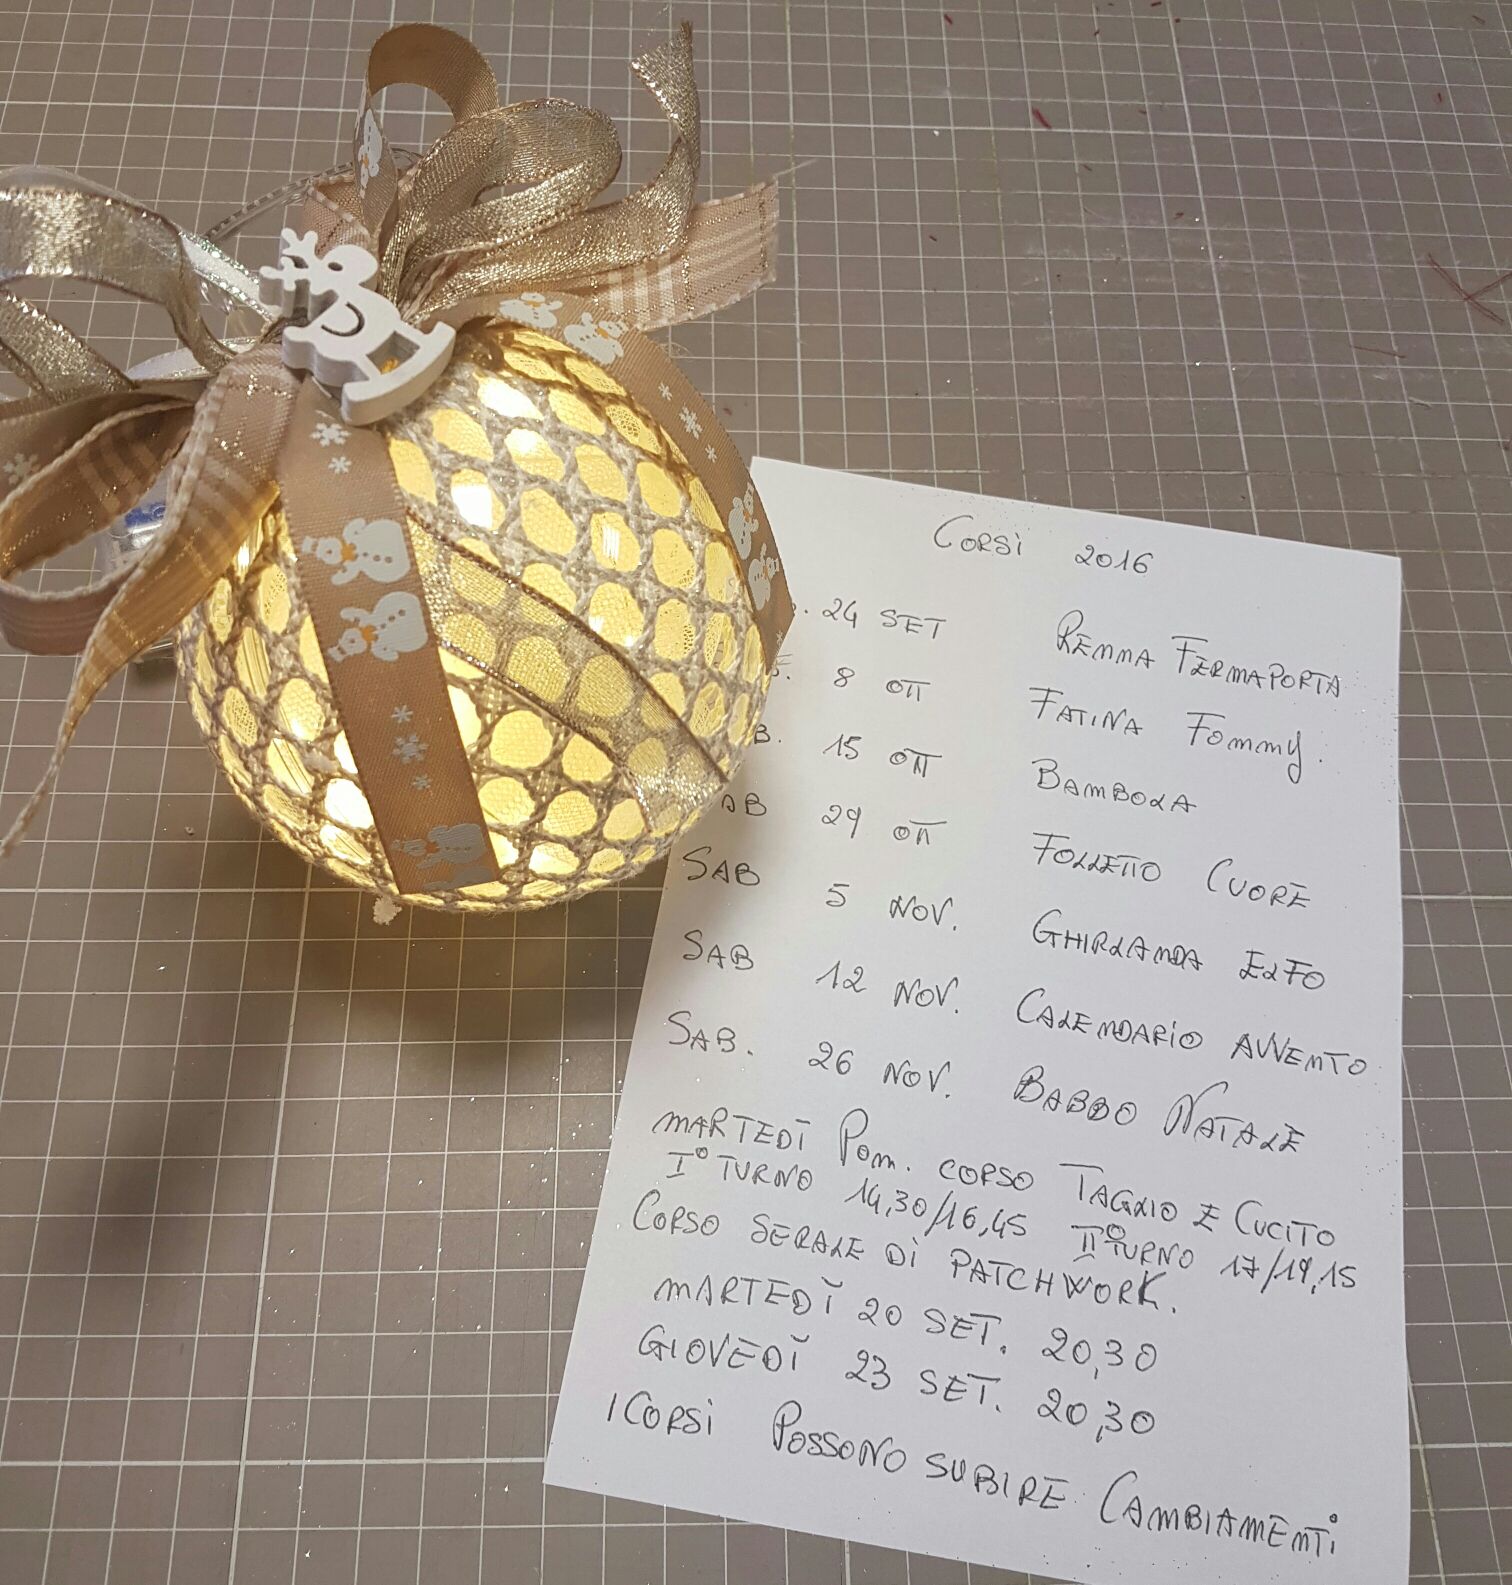 CORSI 2016
24 SET RENNA FERMAPORTA
8 OTT FATINA FOMMY.
B. 15 OTT BAMBOLA
AB 29 OTT FOLLETTO CUORE
SAB 5 NOV. GHIRLANDA ELFO
SAB 12 NOV. CALENDARIO AVVENTO
SAB. 26 NOV. BABBO NATALE
MARTEDÌ POM. CORSO TAGLIO E CUCITO
I° TURNO 14,30/16,45 II° TURNO 17/19,15
CORSO SERALE DI PATCHWORK.
MARTEDÌ 20 SET. 20,30
GIOVEDÌ 23 SET. 20,30
I CORSI POSSONO SUBIRE CAMBIAMENTI